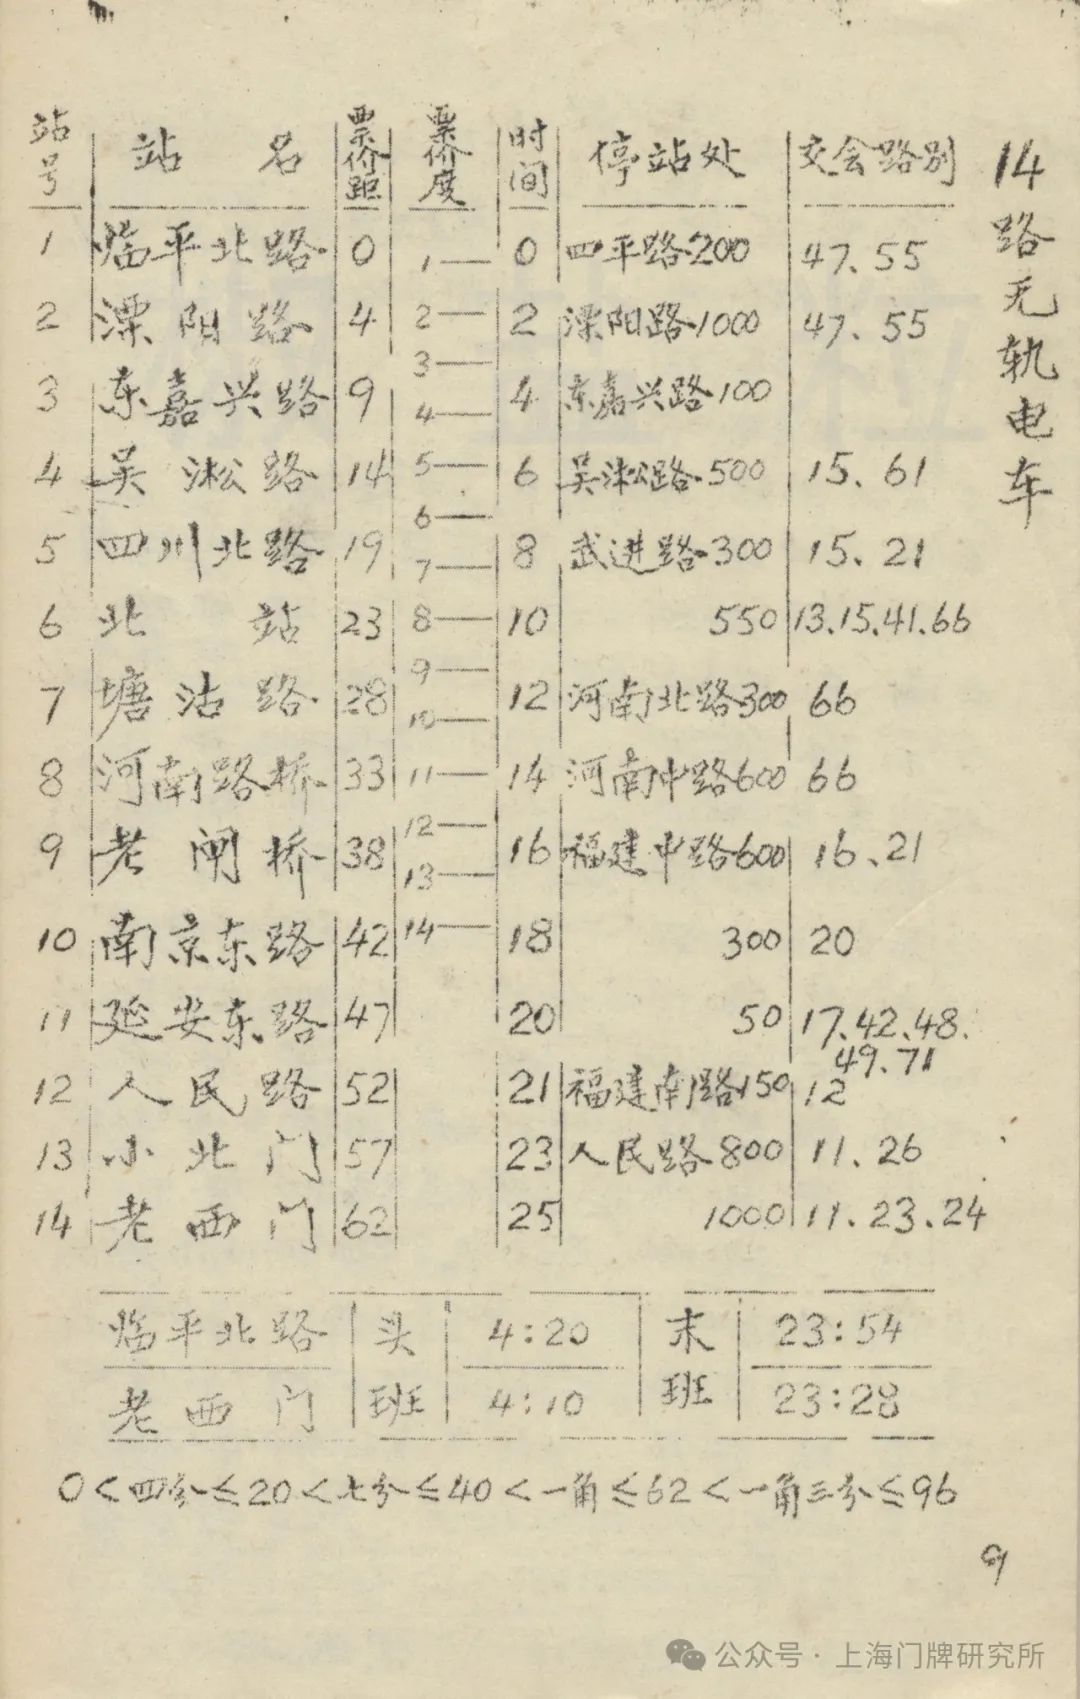 14路无轨电车
站号 站名 票价距 票价度 时间 停站处 交会路别
1 临平北路 0 1— 0 四平路·200 47、55
2 溧阳路 4 2— 2 溧阳路·1000 47、55
3—
3 东嘉兴路 9 4— 4 东嘉兴路·100
4 吴淞路 14 5— 6 吴淞路·500 15、61
6—
5 四川北路 19 7— 8 武进路·300 15、21
6 北站 23 8— 10 550 13、15、41、66
9—
7 塘沽路 28 10— 12 河南北路300 66
8 河南路桥 33 11— 14 河南中路600 66
12—
9 老闸桥 38 13— 16 福建中路600 16、21
10 南京东路 42 14— 18 300 20
11 延安东路 47 20 50 17、42、48、
49、71
12 人民路 52 21 福建南路150 12
13 小北门 57 23 人民路800 11、26
14 老西门 62 25 1000 11、23、24
临平北路 头班 4:20 末班 23:54
老西门 4:10 23:28
0<四分≤20<七分≤40<一角≤62<一角三分≤96
9
公众号·上海门牌研究所